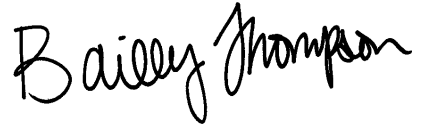 Bailly Thompson